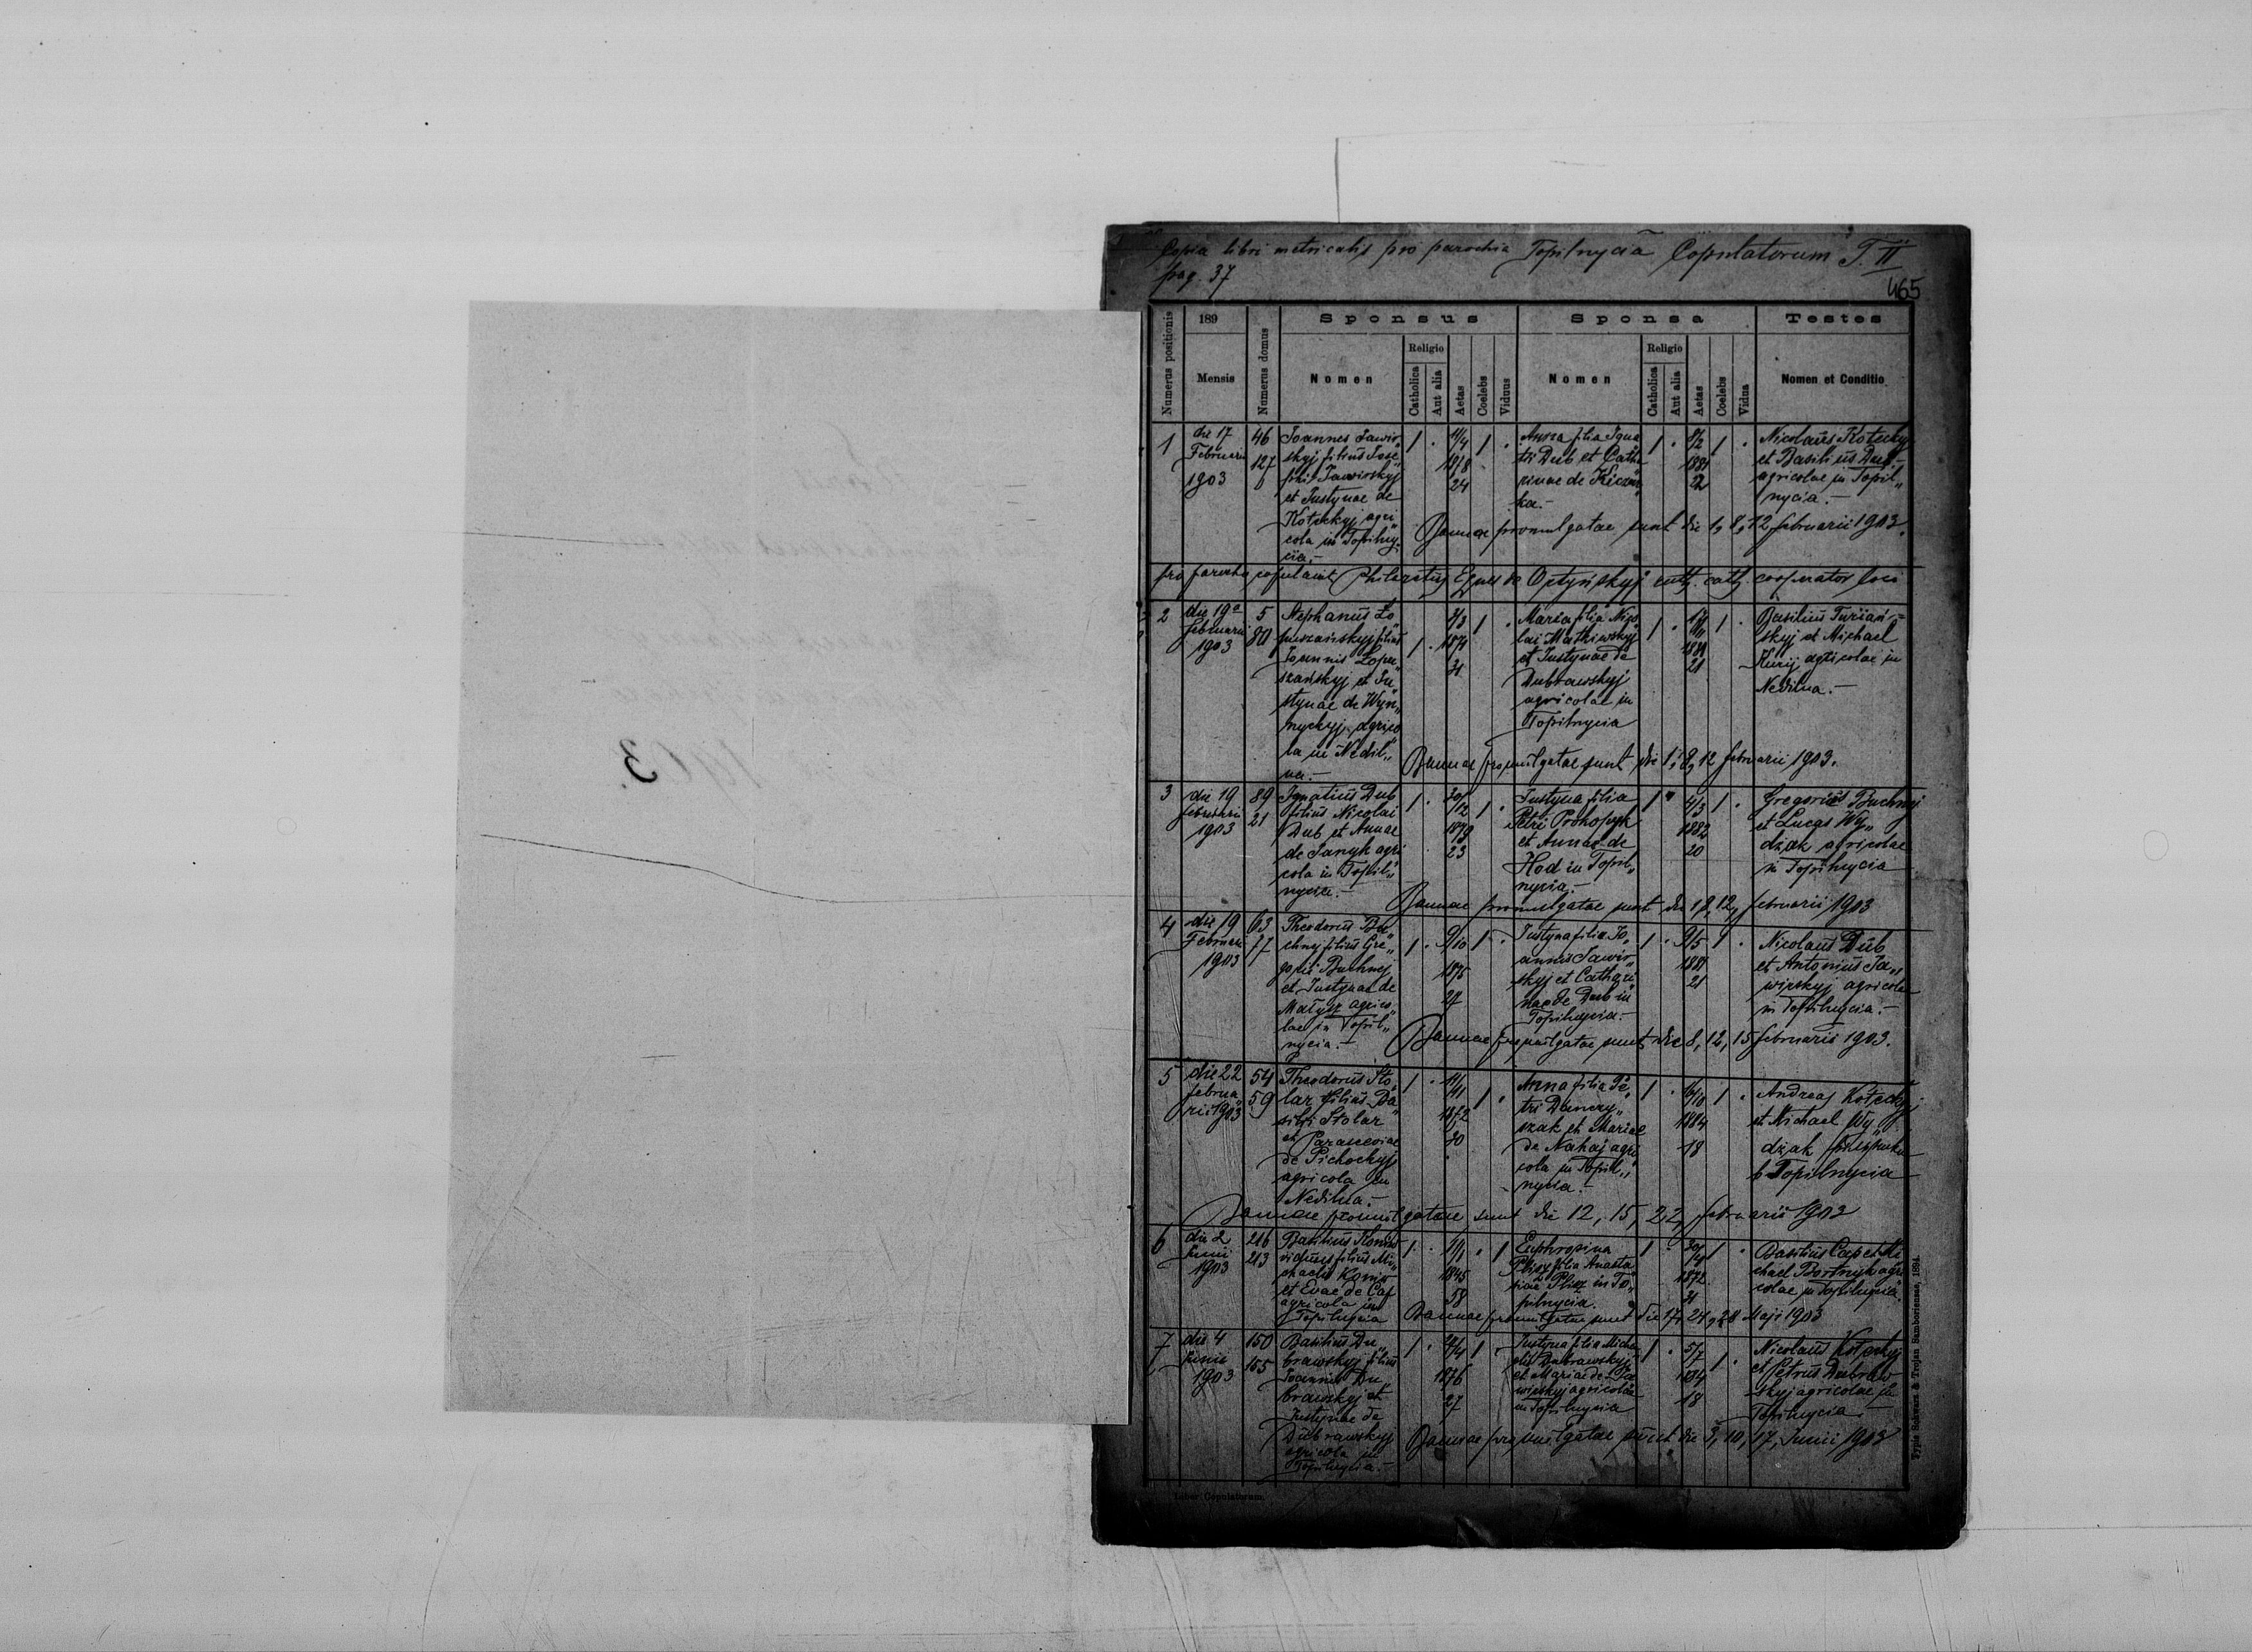 Copia libri metricalis pro parochia Topilnycia Copulatorum T. II
pag. 37
465
Numerus positionis
189
Mensis
Numerus domus
Sponsus
Nomen
Religio
Catholica
Aut alia
Aetas
Coelebs
Viduus
Sponsa
Nomen
Religio
Catholica
Aut alia
Aetas
Coelebs
Vidua
Testes
Nomen et Conditio
1
die 17
Februarii
1903
46
127
Joannes Jawir„
skyj filius Jose„
phi Jawirskyj
et Justynae de
Kotckyj agri„
cola in Topilny„
cia.-
1 .
11/4
1878
24
1 .
Anna filia Igna
tii Dub et Catha
rinae de
ka.-
1 .
8/2
1881
22
1 .
Nicolaus Kotckyj
et Basilius Dub
agricolae in Topil„
nycia.-
Bannae promulgatae sunt die 1, 8, 12 februarii 1903.
pro parocho copulavit Philaretus Eques de Optyńskyj ruth. cath. cooperator loci
2
die 19a
februarii
1903
5
80
Stephanus Ło„
puszańskyj filius
Joannis Łopu„
szańskyj et Ju„
stynae de Wyn„
nyckyj agrico
la in Nedil„
na.-
1 .
3/3
1871
31
1 .
Maria filia Nico
lai Matkiwskyj
et Justynae de
Dubrawskyj
agricolae in
Topilnycia
1 .
1881
21
1 .
Basilius Turiań=
skyj et Michael
Kurij agricolae in
Nedilna.-
Bannae promulgatae sunt die 1, 8, 12 februarii 1903.
3
die 19
februarii
1903
89
21
Ignatius Dub
filius Nicolai
Dub et Annae
de Janyk agri
cola in Topil„
nycia.-
1 .
20/12
1879
23
1 .
Justyna filia
Petri Prokopyk
et Annae de
Hod in Topil„
nycia.-
1 .
4/3
1882
20
1 .
Gregorius Buchnyj
et Lucas Wy„
dżak agricolae
in Topilnycia
Bannae promulgatae sunt die 1, 8, 12, februarii 1903
4
die 19
Februarii
1903
63
77
Theodorus Bu„
chnyj filius Gre„
gorii Buchnyj
et Justynae de
Małysz agrico„
lae in Topil„
nycia.-
1 .
9/10
1875
27
1 .
Justyna filia Jo„
annis Jawir„
skyj et Cathari
nae de Dub in
Topilnycia.-
1 .
9/5
1881
21
1 .
Nicolaus Dub
et Antonius Ja„
wirskyj agricolae
in Topilnycia.-
Bannae promulgatae sunt die 8, 12, 15 februarii 1903.
5
die 22
februa„
rii 1903
54
59
Theodorus Sto„
lar filius Ba„
silii Stolar
et Parasceviae
de Pichockyj
agricola in
Nedilna.-
1 .
11/11
1872
30
1 .
Anna filia Pe„
tri Danczy„
szak et Mariae
de Nahaj agri
cola in Topil„
nycia.-
1 .
16/10
1884
18
1 .
Andreas Koteckyj
et Michael Wy„
dżak
Topilnycia
Bannae promulgatae sunt die 12, 15, 22, februarii 1903
6
die 2
Junii
1903
216
213
Basilius Koniw
viduus filius Mi„
chaelis Koniw
et Evae de Cap
agricola in
Topilnycia
1 .
11/1
1845
58
. 1
Euphrosina
Plisz filia Anasta„
siae Plisz in To„
pilnycia.
1 .
30/4
1872
31
1 .
Basilius Cap et Mi
chael Bortnyk agri
colae in Topilnycia.
Bannae promulgatae sunt die 17, 24, 28 Maji 1903
7
die 4
Junii
1903
150
155
Basilius Du„
brawskyj filius
Joannis Du„
brawskyj et
Justynae de
Dubrawskyj
agricola in
Topilnycia.-
1 .
1876
27
1 .
Justyna filia Micha
elis Dubrawskyj
et Mariae de Ja
wirskyj agricolae
in Topilnycia
1 .
5/7
1884
18
1 .
Nicolaus Koteckyj
et Petrus Dubraw
skyj agricolae in
Topilnycia.-
Bannae promulgatae sunt die 3, 10, 17, Junii 1903
Liber Copulatorum.
Typis Schwarz & Trojan Samboriensis, 1894.
1903.